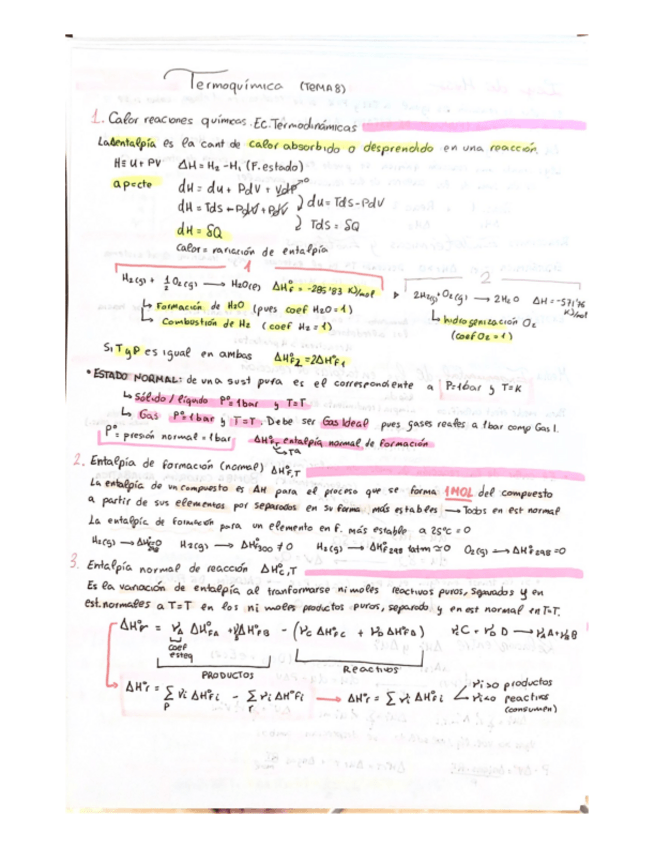 Termoquímica (TEMA 8)
1. Calor reaciones químicas. Ec. Termodinámicas
La entalpía es la cant de calor absorbido o desprendido en una reacción.
H≡U+PV ΔH=H₂-H₁ (F. estado)
a p=cte dH = dU + PdV + VdP⁰
dH = TdS - PdV + PdV
dU = TdS - PdV
TdS = δQ
dH = δQ
Calor = variación de entalpía
1
H₂(g) + 1/2 O₂(g) → H₂O(l) ΔH°F = -285'83 KJ/mol
↳ Formación de H₂O (pues coef H₂O = 1)
↳ Combustión de H₂ (coef H₂ = 1)
2
2H₂(g) + O₂(g) → 2H₂O ΔH = -571'76 KJ/mol
↳ hidrogenización O₂
(coef O₂ = 1)
Si T y P es igual en ambas ΔH°F2 = 2ΔH°F1
• ESTADO NORMAL: de una sust pura es el correspondiente a P=1bar y T=K
↳ Sólido / líquido P°=1bar y T=T
↳ Gas P°=1bar y T=T. Debe ser Gas Ideal pues gases reales a 1bar comp Gas I.
P° = presión normal = 1bar ΔH°T, entalpía normal de formación
Tª
2. Entalpía de formación (normal) ΔH°F,T
La entalpía de un compuesto es ΔH para el proceso que se forma 1MOL del compuesto
a partir de sus elementos por separados en su forma más estables → Todos en est normal
La entalpía de formación para un elemento en F. más estable a 25°C = 0
H₂(g) → ΔH°298=0 H₂(g) → ΔH°300 ≠ 0 H₂(g) → ΔH°F298 1atm ≃ 0 O₂(g) → ΔH°F298 = 0
3. Entalpía normal de reacción ΔH°C,T
Es la variación de entalpía al tranformarse ni moles reactivos puros, separados y en
est. normales a T=T en los ni moles productos puros, separado y en est normal en T=T.
ΔH°r = νA ΔH°FA + νB ΔH°FB - (νC ΔH°FC + νD ΔH°FD) νC C + νD D → νA A + νB B
coef
esteq
PRODUCTOS
Reactivos
ΔH°r = Σ νi ΔH°Fi - Σ νi ΔH°Fi → ΔH°r = Σ νi ΔH°Fi
P r
νi>0 productos
νi<0 reactivos
(consumen)